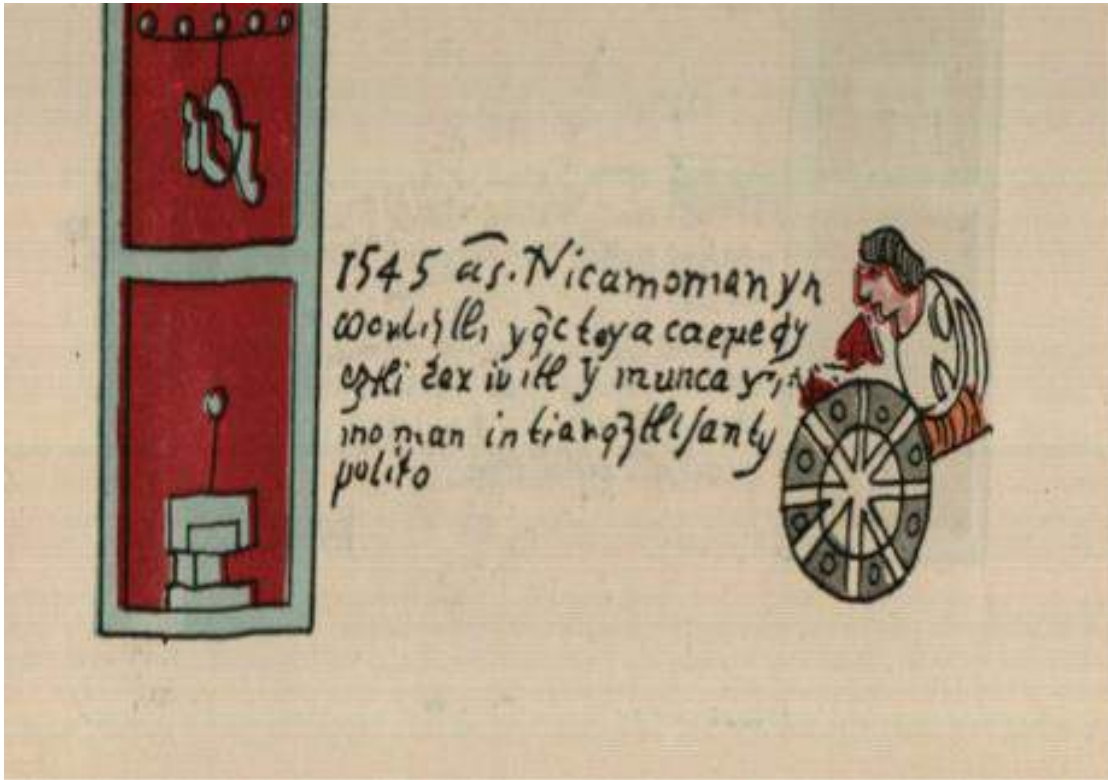 1545 a͠s. Nicamoman yn
cocoliztli yq̃c toyacacpa
eztli çex ivitl y manca
moman in tianqztli santy
polito